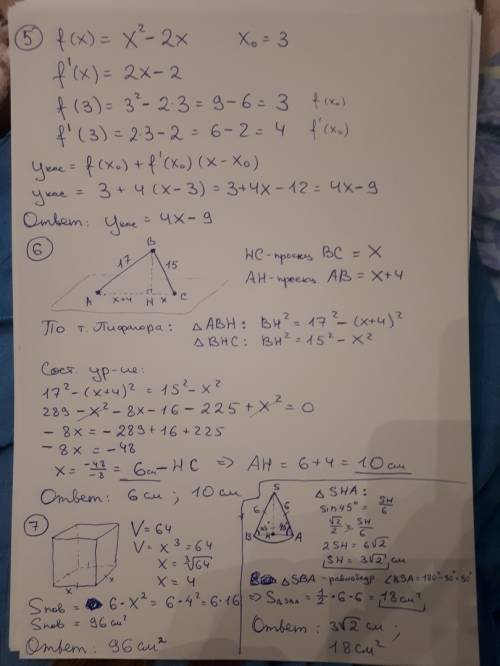 5 f(x) = x² - 2x x₀ = 3
f'(x) = 2x - 2
f(3) = 3² - 2·3 = 9 - 6 = 3 f(x₀)
f'(3) = 2·3 - 2 = 6 - 2 = 4 f'(x₀)
yкас = f(x₀) + f'(x₀)(x - x₀)
yкас = 3 + 4(x - 3) = 3 + 4x - 12 = 4x - 9
Ответ: yкас = 4x - 9
6
B
17 15
A x+4 H x C
HC - проекц BC = x
AH - проекц. AB = x+4
По т. Пифагора: △ABH: BH² = 17² - (x+4)²
△BHC: BH² = 15² - x²
Сост. ур-ие:
17² - (x+4)² = 15² - x²
289 - x² - 8x - 16 - 225 + x² = 0
- 8x = - 289 + 16 + 225
- 8x = - 48
x = -48/-8 = 6см - HC ⇒ AH = 6+4 = 10см
Ответ: 6 см ; 10 см
7
x x
V = 64
V = x³ = 64
x = ∛64
x = 4
Sпов = 6·x² = 6·4² = 6·16
Sпов = 96см²
Ответ: 96 см²
S
6 6
B 45° H 45° A
△SHA:
sin45° = SH/6
√2/2 = SH/6
2SH = 6√2
SH = 3√2 см
△SBA - равнобедр ∠BSA = 180°-90°=90°
⇒ S△SBA = 1/2 · 6 · 6 = 18см²
Ответ: 3√2 см ;
18 см²